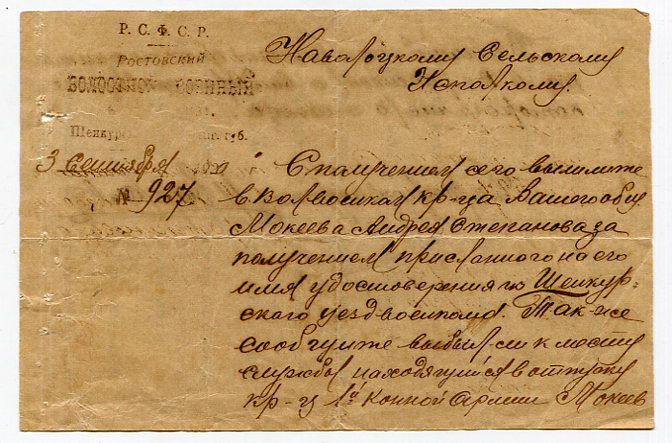 Р. С. Ф. С. Р.
Ростовский
ВОЛОСТНОЙ ВОЕННЫЙ
Шенкур губ.
3 Сентября
№ 927
Навалоцкому Сельскому
Исполкому.
С получением сего вышлите
в Волвоенком кр-ца Вашего об-ва
Мокеева Андрея Степанова за
получением присланного на его
имя удостоверения из Шенкур-
ского уездвоенкома. Так-же
сообщите выбыл-ли к месту
службы находящийся в отпуску
кр-ц 1й Конной Армии Мокеев